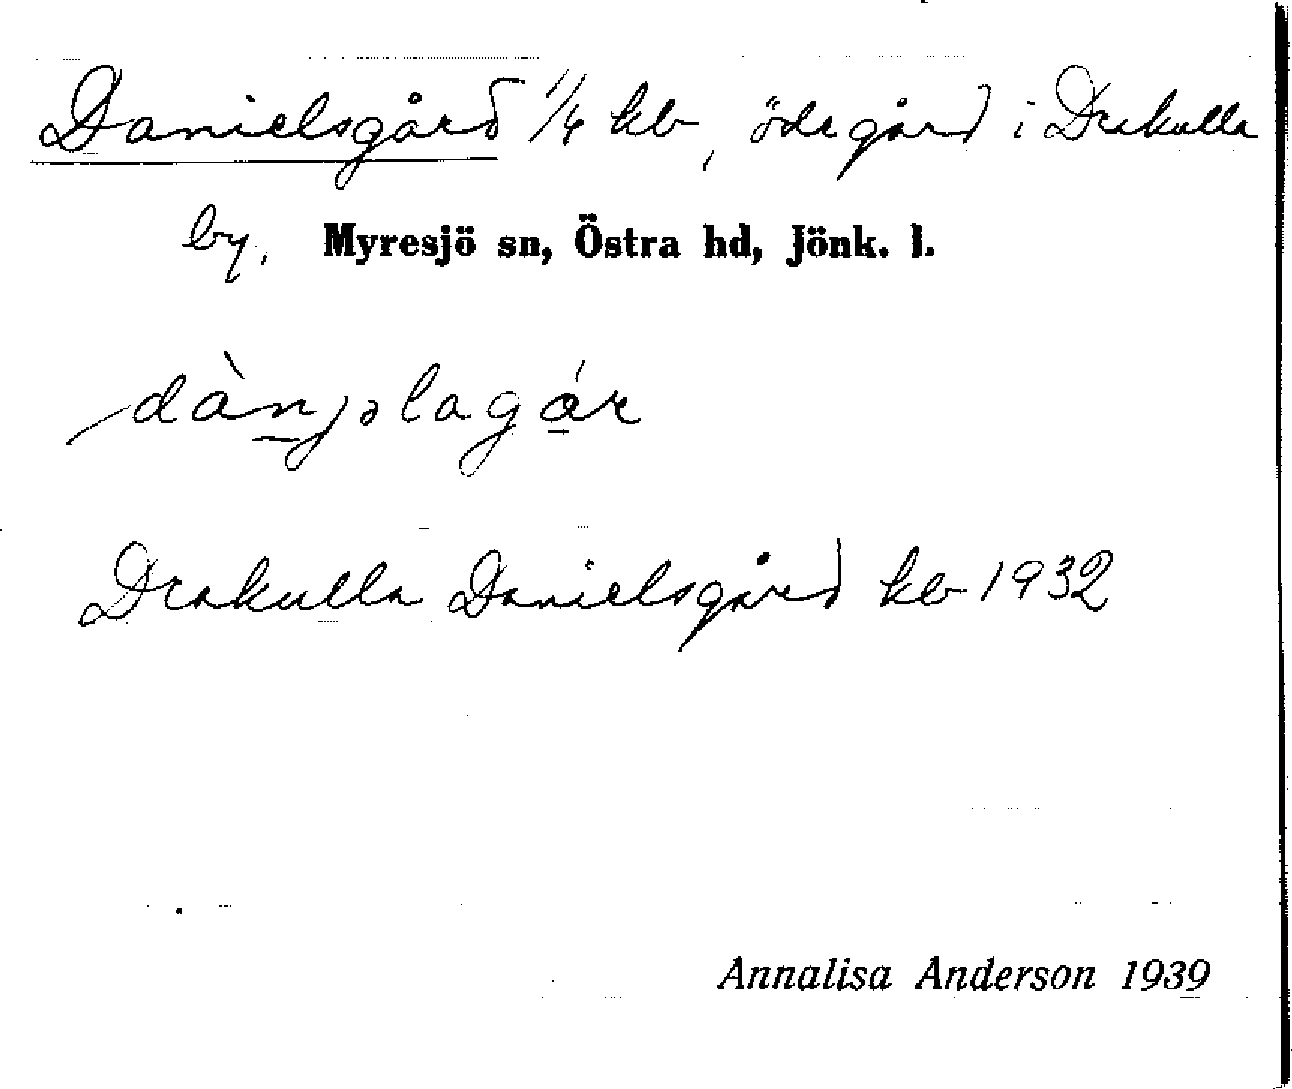 Danielsgård 1/4 kb, ödegård i Drakulla
by, Myresjö sn, Östra hd, Jönk. l.
Drakulla Danielsgård kb 1932
Annalisa Anderson 1939